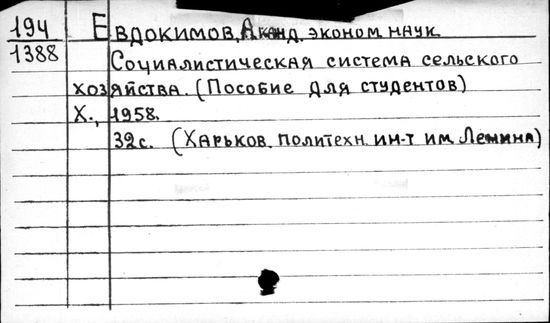 194 Евдокимов, А. канд. эконом наук
1388 Социалистическая система сельского
хозяйства. (Пособие для студентов)
Х., 1958.
32с. (Харьков. политехн. ин-т им Ленина)